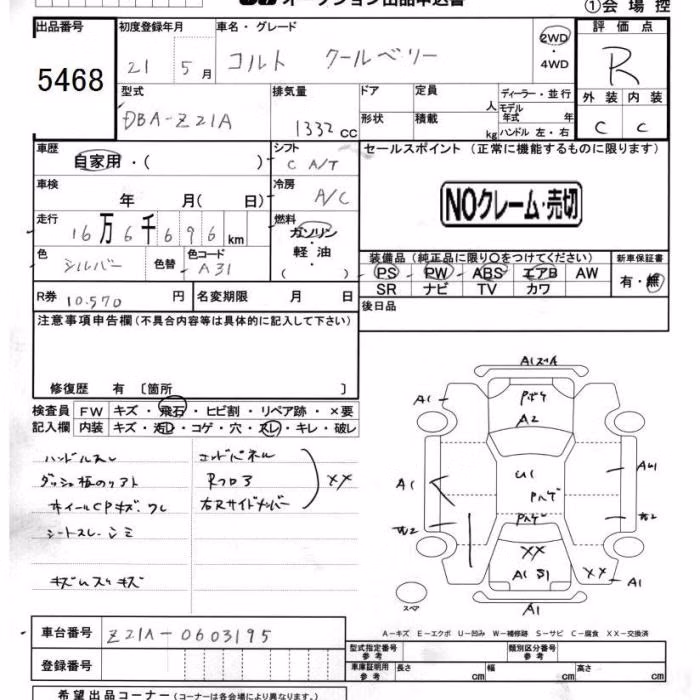 オークション出品申込書
①会場控
出品番号
5468
初度登録年月
21 5月
車名・グレード
コルト クールベリー
2WD
・
4WD
評価点
R
外装 内装
C C
型式
DBA-Z21A
排気量
1332 cc
ドア
形状
定員 人
積載 kg
ディーラー・並行
モデル年式 年
ハンドル 左・右
車歴
自家用・( )
シフト
C A/T
車検
年 月( 日)
冷房
A/C
走行
16万6千696km
燃料
ガソリン
・
軽油
( )
色
シルバー
色替
色コード
A31
R券 10.570 円
名変期限 月 日
セールスポイント(正常に機能するものに限ります)
NOクレーム・売切
装備品(純正品に限り○をつけてください)
PS PW ABS エアB AW
SR ナビ TV カワ
新車保証書
有・無
後日品
注意事項申告欄(不具合内容等は具体的に記入して下さい)
修復歴 有〔箇所 〕
検査員
記入欄
FW キズ・飛石・ヒビ割・リペア跡・×要
内装 キズ・汚レ・コゲ・穴・スレ・キレ・破レ
ハンドルスレ
シートスレ シミ
エンドパネル
Rフロア
右Rサイドメンバー
XX
A1
A1
A2
A1
U1
A1
W2
XX
XX
A1
A1
スペア
A-キズ E-エクボ U-凹み W-補修跡 S-サビ C-腐食 XX-交換済
車台番号 Z21A-0603195
登録番号
型式指定番号
参考
類別区分番号
参考
車庫証明用
参考
長さ cm
幅 cm
高さ cm
希望出品コーナー(コーナーは各会場により異なります。)